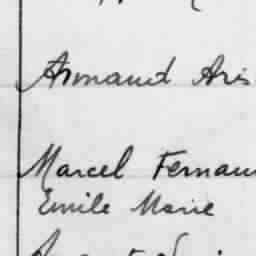 Armand Aris
Marcel Fernan
Emile Marie